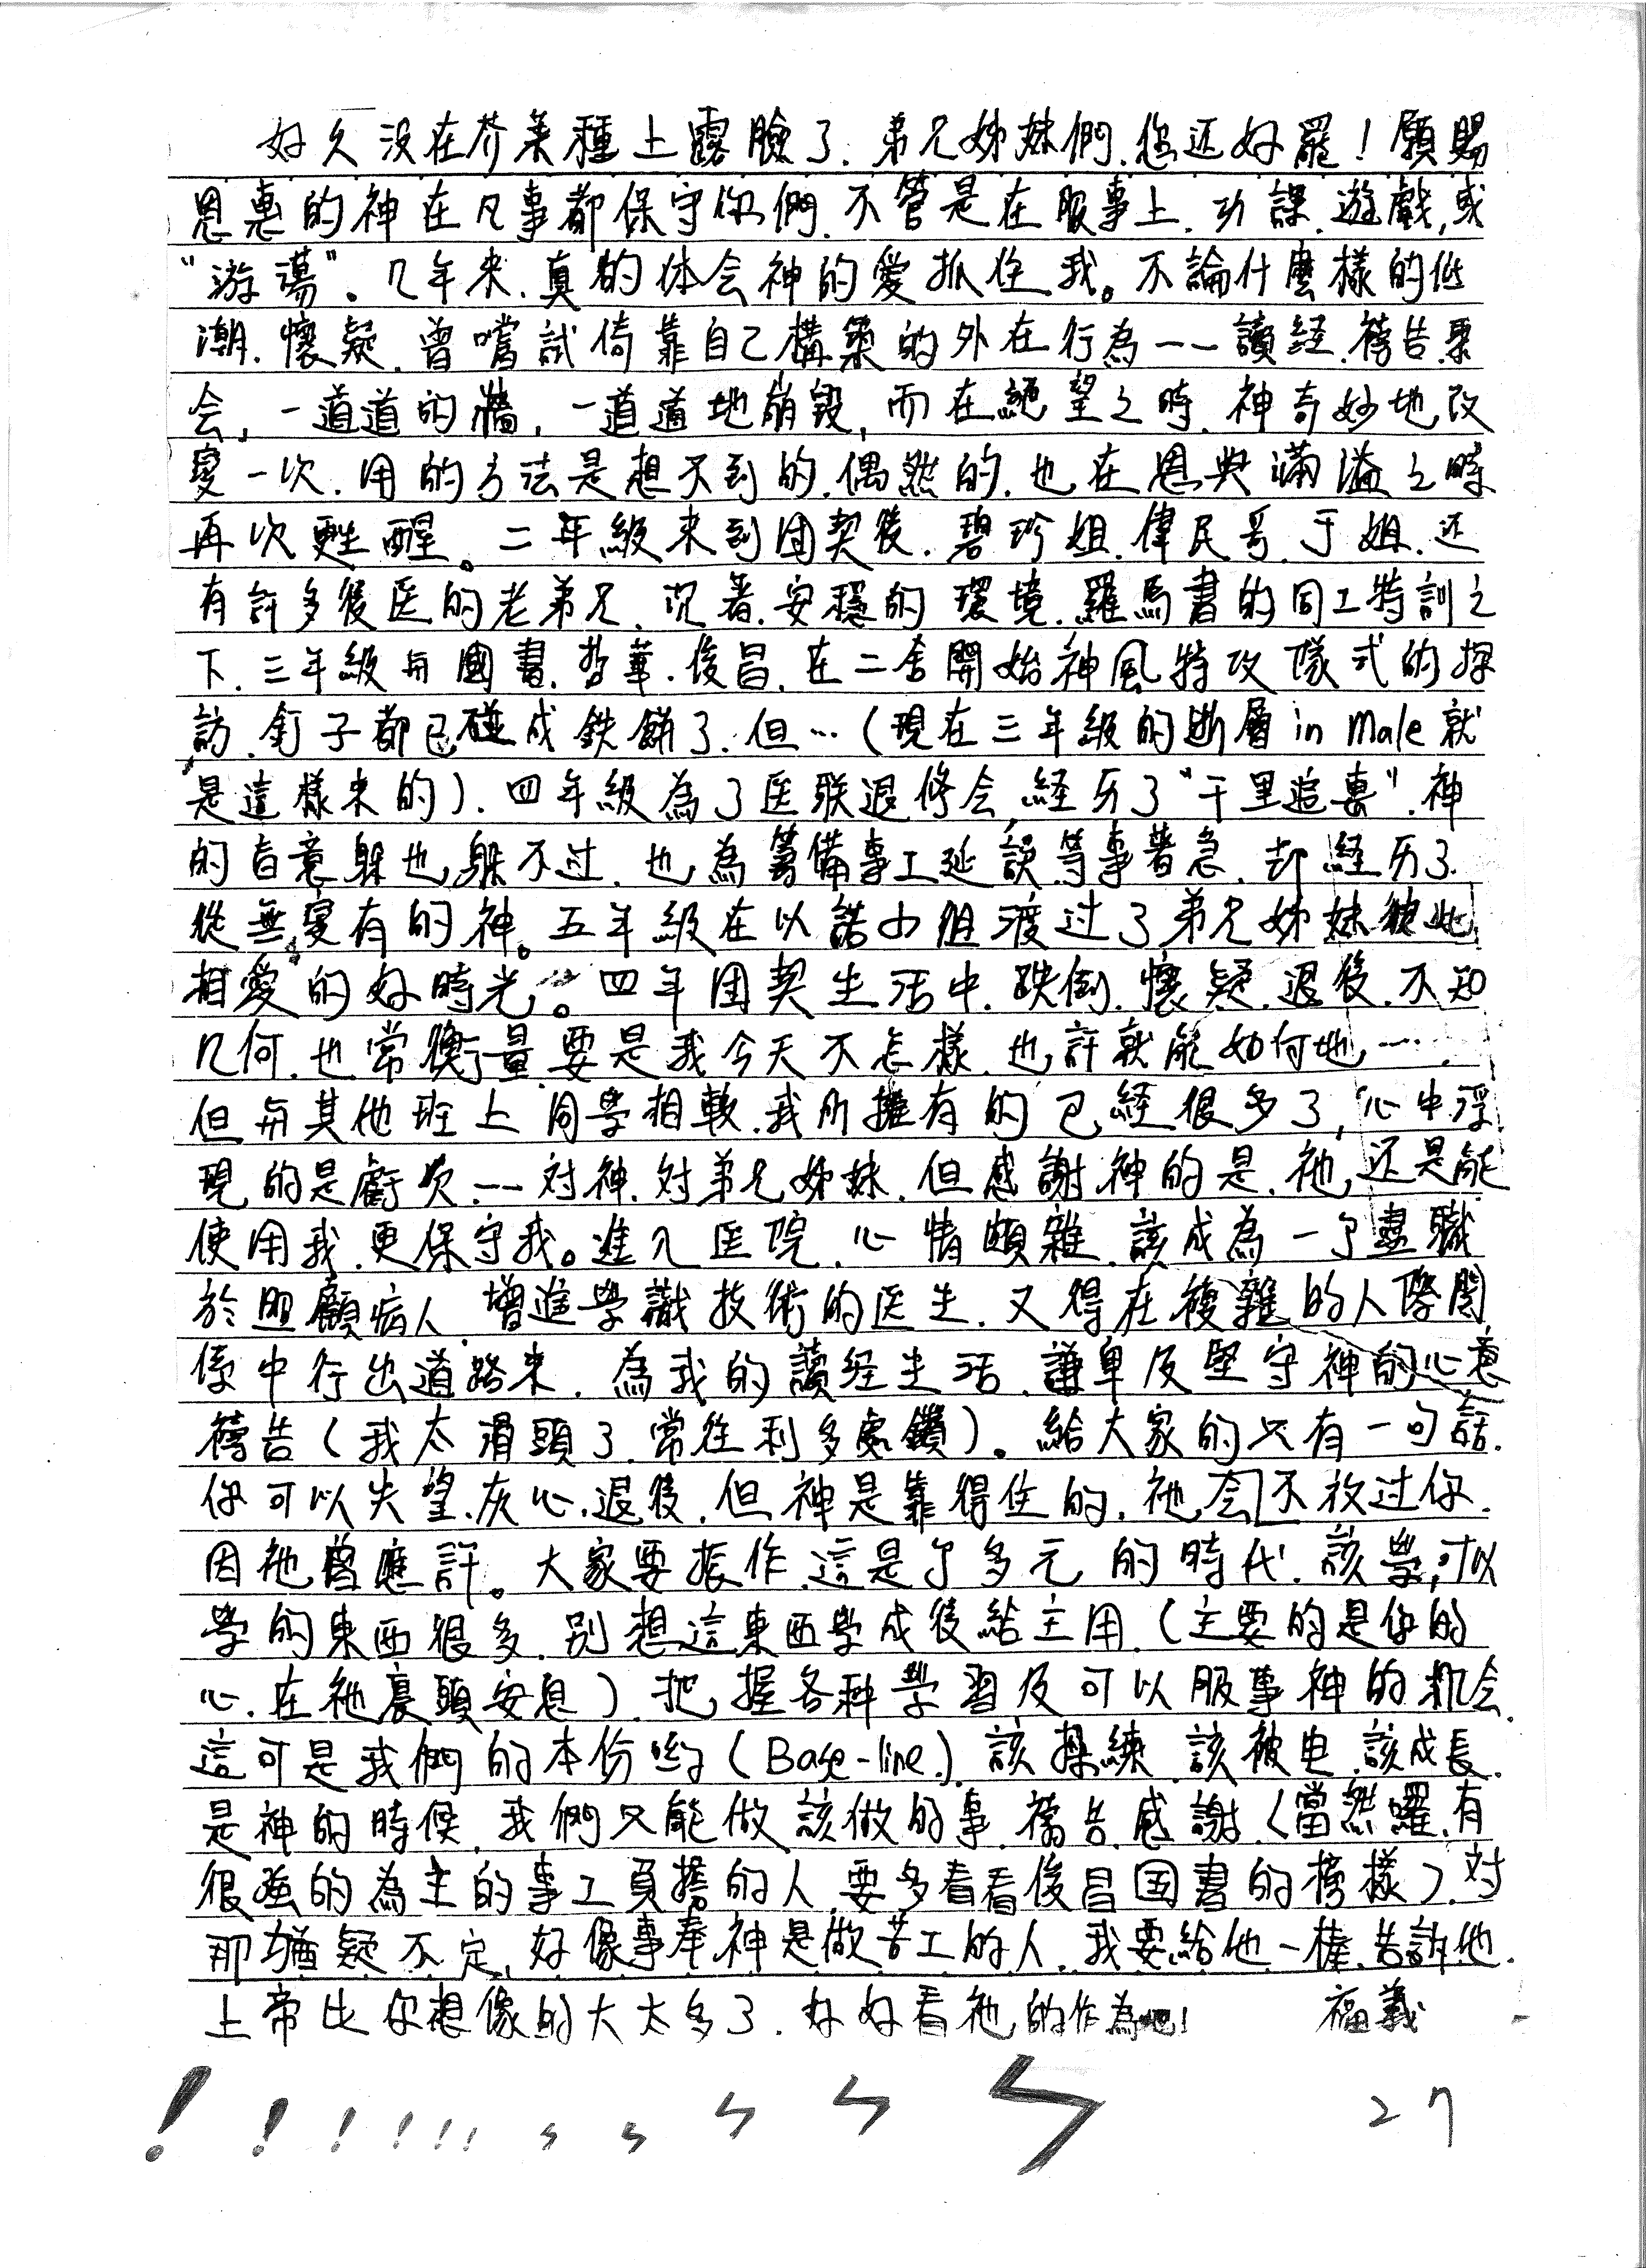 好久没在芥菜種上露臉了．弟兄姊妹們．您还好罷！願賜
恩惠的神在凡事都保守你們．不管是在服事上．功課．遊戲，或
“游蕩”。几年來．真的体会神的愛抓住我。不論什麼樣的低
潮．懷疑．曾嚐試倚靠自己構築的外在行為——讀経．禱告．聚
会，一道道的牆，一道道地崩毀，而在絕望之時．神奇妙地改
變一次．用的方法是想不到的．偶然的．也在恩典滿溢之時
再次甦醒。二年級來到团契後．碧珍姐．偉民哥．于姐．还
有許多後医的老弟兄．沉著．安穩的環境．羅馬書的同工特訓之
下．三年級与國書．哲華．俊昌．在二舍開始神風特攻隊式的探
訪．釘子都已碰成鉄餅了．但…（現在三年級的断層 in Male 就
是這樣來的）．四年級為了医联退修会，経历了“千里追裏”．神
的旨意躲也躲不过．也為籌備事工延誤等事著急．却経历了
從無變有的神。五年級在以諾小組渡过了弟兄姊妹彼此
相愛的好時光。四年团契生活中．跌倒．懷疑．退後．不知
几何．也常衡量要是我今天不怎樣．也許就能如何地……
但与其他班上同學相較．我所擁有的已経很多了，心中浮
現的是虧欠——对神．对弟兄姊妹．但感謝神的是．祂，还是能
使用我．更保守我。進入医院．心情頗雜．該成為一个盡職
於照顧病人．增進學識技術的医生．又得在複雜的人際関
係中行出道路來．為我的讀経生活．謙卑及堅守神的心意
禱告（我太滑頭了．常往利多處鑽）。給大家的只有一句話．
你可以失望．灰心．退後．但神是靠得住的．祂会不放过你．
因祂曾應許。大家要振作．這是个多元的時代．該學，可以
學的東西很多．別想這東西學成後給主用．（主要的是你的
心．在祂裏頭安息）．把握各种學習及可以服事神的机会．
這可是我們的本份哟（Base-line）．該操練．該被电．該成長．
是神的時候．我們只能做該做的事．禱告．感謝（當然囉．有
很強的為主的事工負擔的人．要多看看俊昌国書的榜樣）．对
那猶疑不定，好像事奉神是做苦工的人．我要給他一棒．告訴他．
上帝比你想像的大太多了．好好看祂的作為吧！ 福義
！！！！！！ 27